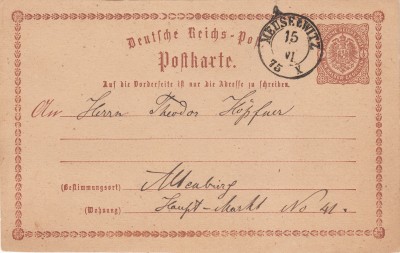 Deutsche Reichs-Post
MEUSELWITZ
15
VI
75
V
Postkarte.
Auf die Vorderseite ist nur die Adresse zu schreiben.
An Herrn Theodor Höpfner
(Bestimmungsort) Altenburg
(Wohnung) Haupt-Markt No 41.